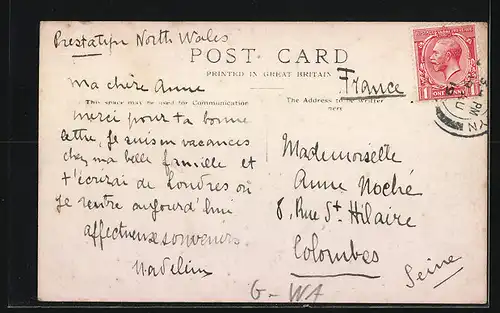 Prestatyn North Wales
POST CARD
PRINTED IN GREAT BRITAIN
France
Ma chère Anne
This space may be used for Communication
The Address to be written here
merci pour ta bonne
lettre, Je suis en vacances
chez ma belle famille et
t'écrirai de Londres où
je rentre aujourd'hui
affectueux souvenirs
Madelein
Mademoiselle
Anne Noché
8, Rue St Hilaire
Colombes
Seine
G-WA
1 ONE PENNY 1
PM
YN